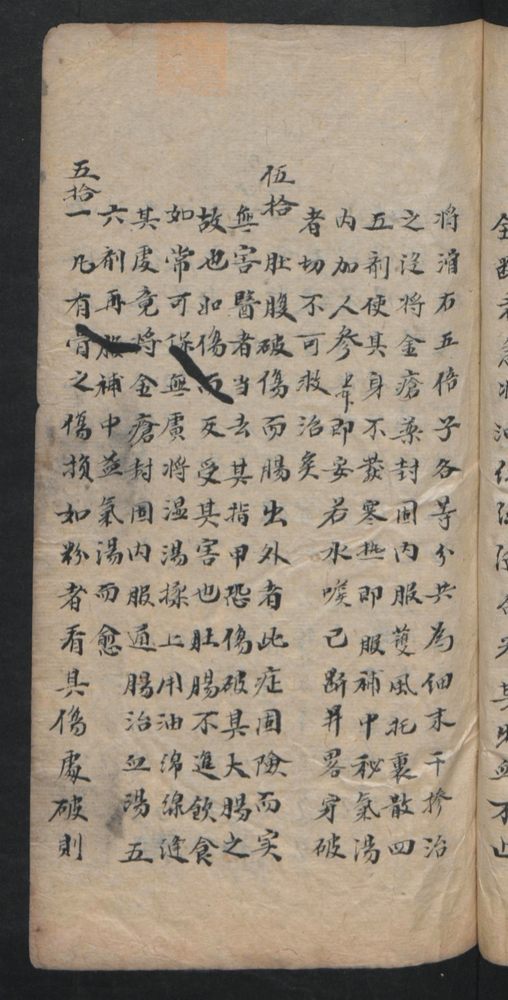 將滑石五倍子各等分共為細末干摻治
之後將金瘡藥封固內服護風托裏散四
五劑使其身不發寒熱即服補中秘氣湯
內加人參即安若水喉已斷并胃穿破
者切不可救治矣
伍拾 肚腹破傷而腸出外者此症固險而实
無害醫者当去其指甲恐傷破其大腸之
故也如傷而反受其害也肚腸不進飲食
如常可保無虞將温湯揉上用油綿線縫
其處竟將金瘡封固內服通腸治血湯五
六劑再服補中益氣湯而愈
五拾一 凡有骨之傷損如粉者看其傷處破則